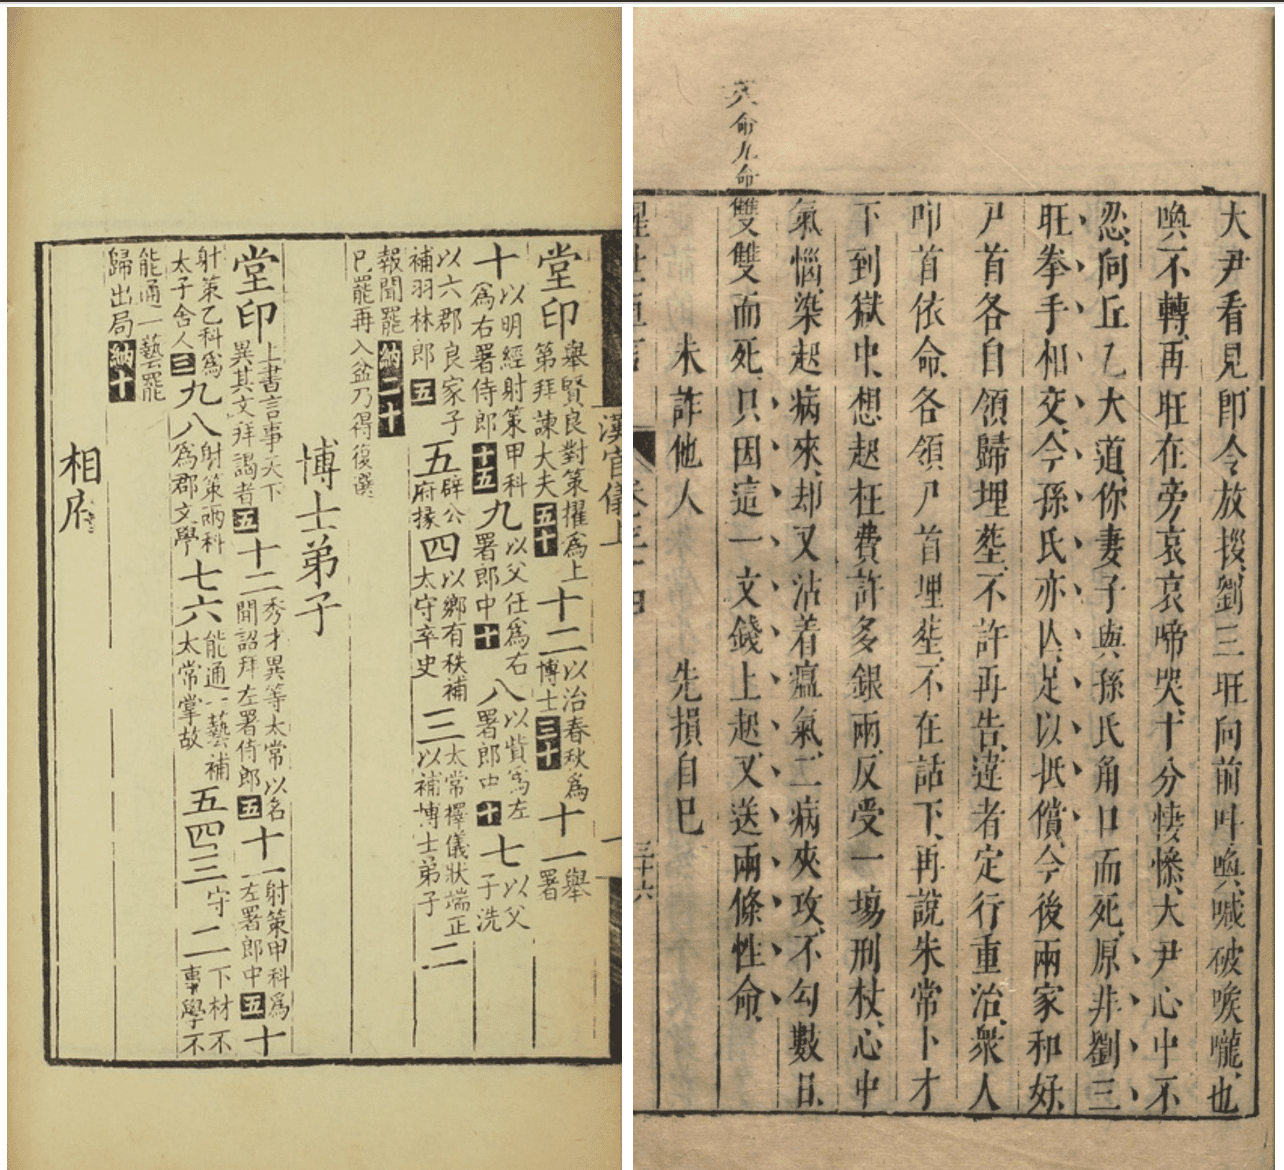 漢官儀上 一
堂印舉賢良對策擢為上第拜諫大夫五十十二以治春秋為博士三十十一舉署
十以明經射策甲科為右署侍郎十五九以父任為右署郎中十八以貲為左署郎中十七以父子洗
以六郡良家子補羽林郎五五辟公府掾四以鄉有秩補太守卒史三太常擇儀狀端正以補博士弟子二
報聞罷納二十巳罷再入盆乃得復選
博士弟子
堂印上書言事天下異其文拜謁者五十二秀才異等太常以名聞詔拜左署侍郎五十一射策甲科為左署郎中五十
射策乙科為太子舍人三九八射策丙科為郡文學七六能通一藝補太常掌故五四三守二下材不事學不
能通一藝罷歸出局納十
相府
大尹看見、卽令放拶、劉三旺向前呌喚、喊破喉嚨、也
喚不轉、再旺在旁哀哀啼哭、十分悽慘、大尹心中不
忍、向丘乙大道、你妻子與孫氏角口而死、原非劉三
旺拳手相交、今孫氏亦亾、足以抵償、今後兩家和好、
尸首各自領歸埋塟、不許再告、違者定行重治、衆人
叩首依命、各領尸首埋塟、不在話下、再說朱常卜才
下到獄中、想起枉費許多銀兩、反受一塲刑杖、心中
氣惱、染起病來、却又沾着瘟氣、二病夾攻、不勾數日、
雙雙而死、只因這一文錢上起、又送兩條性命、
未詐他人 先損自巳
命九命
三十六